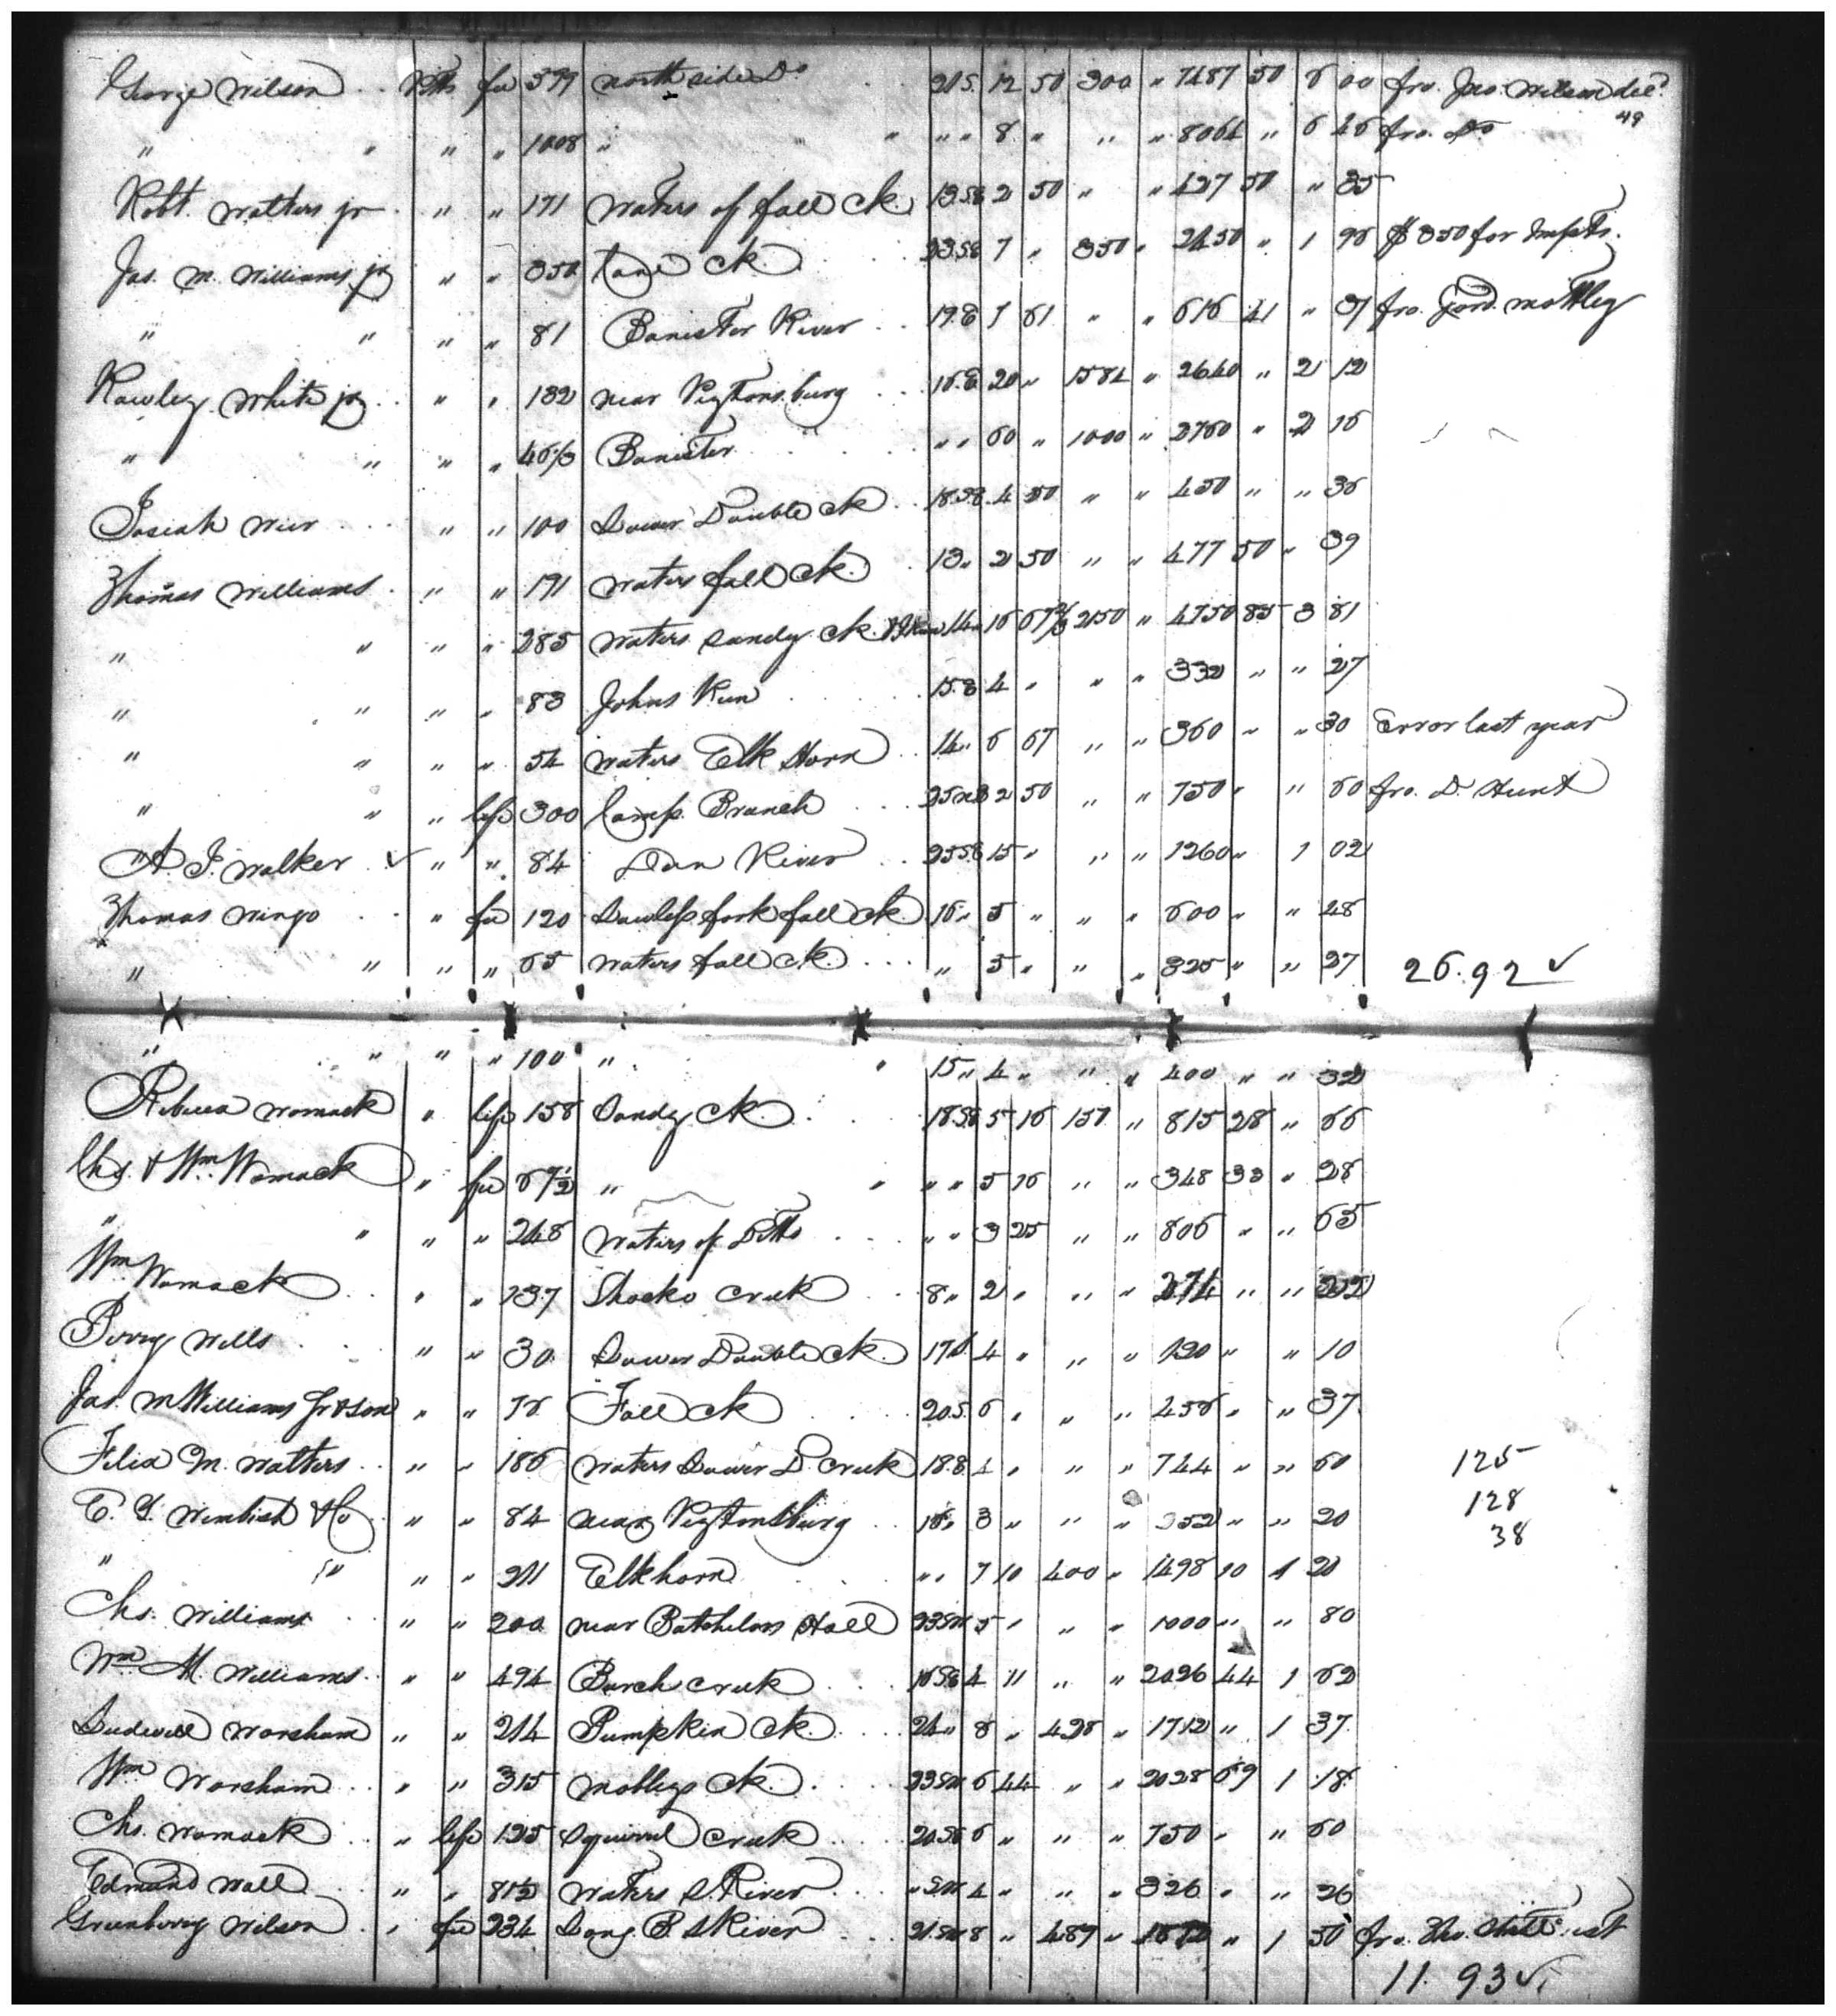 George Wilson . . Pitts fee 599 north side Do 21 S. 12 50 300 " 7487 50 6 00 fro. Jno. Wilson dec'd
" " " " 1008 " " " " 8 " " " 8064 " 6 45 fro. Do 49
Robt. Walters jr . " " 171 Waters of fall Ck. 13 SE 2 50 " " 427 50 " 35
Jas. M. Williams jr " " 350 Cane Ck 23 SE 7 " 350 " 2450 " 1 96 $350 for Impts.
" " " " 81 Banister River . . 19 E 7 61 " " 616 41 " 51 fro. Ford. Mottley
Rawley White jr . . " " 132 near Pigtonsburg . . 16 E 20 " 1584 " 2640 " 2 12
" " " " 46/3 Banister . . . " " 60 " 1000 " 2760 " 2 16
Josiah Wier . . . " " 100 Lower Double Ck . . 18 SE 4 50 " " 450 " " 36
Thomas Williams . " " 191 Waters fall Ck. . 13 " 2 50 " " 477 50 " 39
" " " " 285 Waters Sandy Ck. 14 " 16 67 2/3 2150 " 4750 85 3 81
" " " " 83 Johns Run . . . 15 E 4 " " " 332 " " 27
" " " " 54 Waters Elk Horn . . 14 " 6 67 " " 360 " " 30 Error last year
" " " life 300 Camp Branch . . . 25 2 50 " " 750 " " 60 fro. D. Hunt
A. J. Walker ✓ " " 84 Dan River . . 25 SE 15 " " " 1260 " 1 02
Thomas Wingo . . " fee 120 Lawless fork fall Ck. 16 " 5 " " " 600 " " 48
" " " " 65 Waters fall Ck. . . . " 5 " " " 325 " " 27 26.92 ✓
" " " " 100 " " 15 " 4 " " " 400 " " 32
Rebecca Womack " life 158 Sandy Ck. . . 18 SE 5 16 150 " 815 28 " 66
Chs. & Wm. Womack " fee 67 1/2 " " " " 5 16 " " 348 33 " 28
" " " " 248 Waters of Ditto . . . " " 3 25 " " 806 " " 65
Wm Womack . . " " 137 Shocko Creek . . 8 " 2 " " " 274 " " 22
Perry Wells . . . " " 30 Lower Double Ck. 17 E 4 " " " 120 " " 10
Jas. M Williams Jr & Son " " 76 Fall Ck . . . 20 S. 6 " " " 456 " " 37
Felix M. Walters . . " " 186 Waters Lower D. Creek 18 E 4 " " " 744 " " 60 125
E. G. Wimbish & Co " " 84 near Pigtonsburg . . 16 " 3 " " " 252 " " 20 128
38
" " " " 211 Elkhorn . . . " " 7 10 400 " 1498 10 1 20
Chs. Williams . . " " 200 near Batchelors Hall 23 SW 5 " " " 1000 " " 80
Wm M. Williams . . " " 494 Burch Creek . . . 16 SE 4 11 " " 2026 44 1 62
Ludwell Worsham " " 214 Pumpkin Ck. . . . 24 " 8 " 428 " 1712 " 1 37
Wm Worsham . . . " " 315 Mobleys Ck. . . 23 SW 6 44 " " 2028 69 1 18
Chs. Womack . . " life 125 Squirrel Creek . . . 20 SE 6 " " " 750 " " 60
Edmund Wall . . . " " 81 1/2 Waters S. River . . . " SW 4 " " " 326 " " 26
Greenberry Wilson . " fee 234 Long B. S River . . . 21 SW 8 " 487 " 1872 " 1 50 fro. Tho. est
11.93 ✓